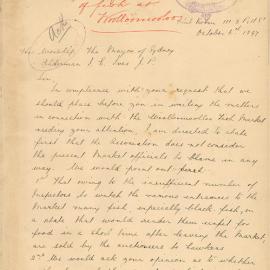 of fish at
Woolloomooloo
Club Room
October 2nd 1897
His Worship The Mayor of Sydney
Alderman I. E. Ives J.P.
Sir,
In compliance with your request that we
should place before you in writing the matters
in connection with the Woolloomooloo Fish Market
needing your attention, I am directed to state
first that the Association does not consider
the present Market officials to blame in any
way. We would point out
1st That owing to the insufficient number of
Inspectors to watch the various entrances to the
Market many fish, especially black fish, in
a state that would render them unfit for
food in a short time after leaving the Market
are sold by the auctioneers to hawkers
2nd We would ask your opinion as to whether